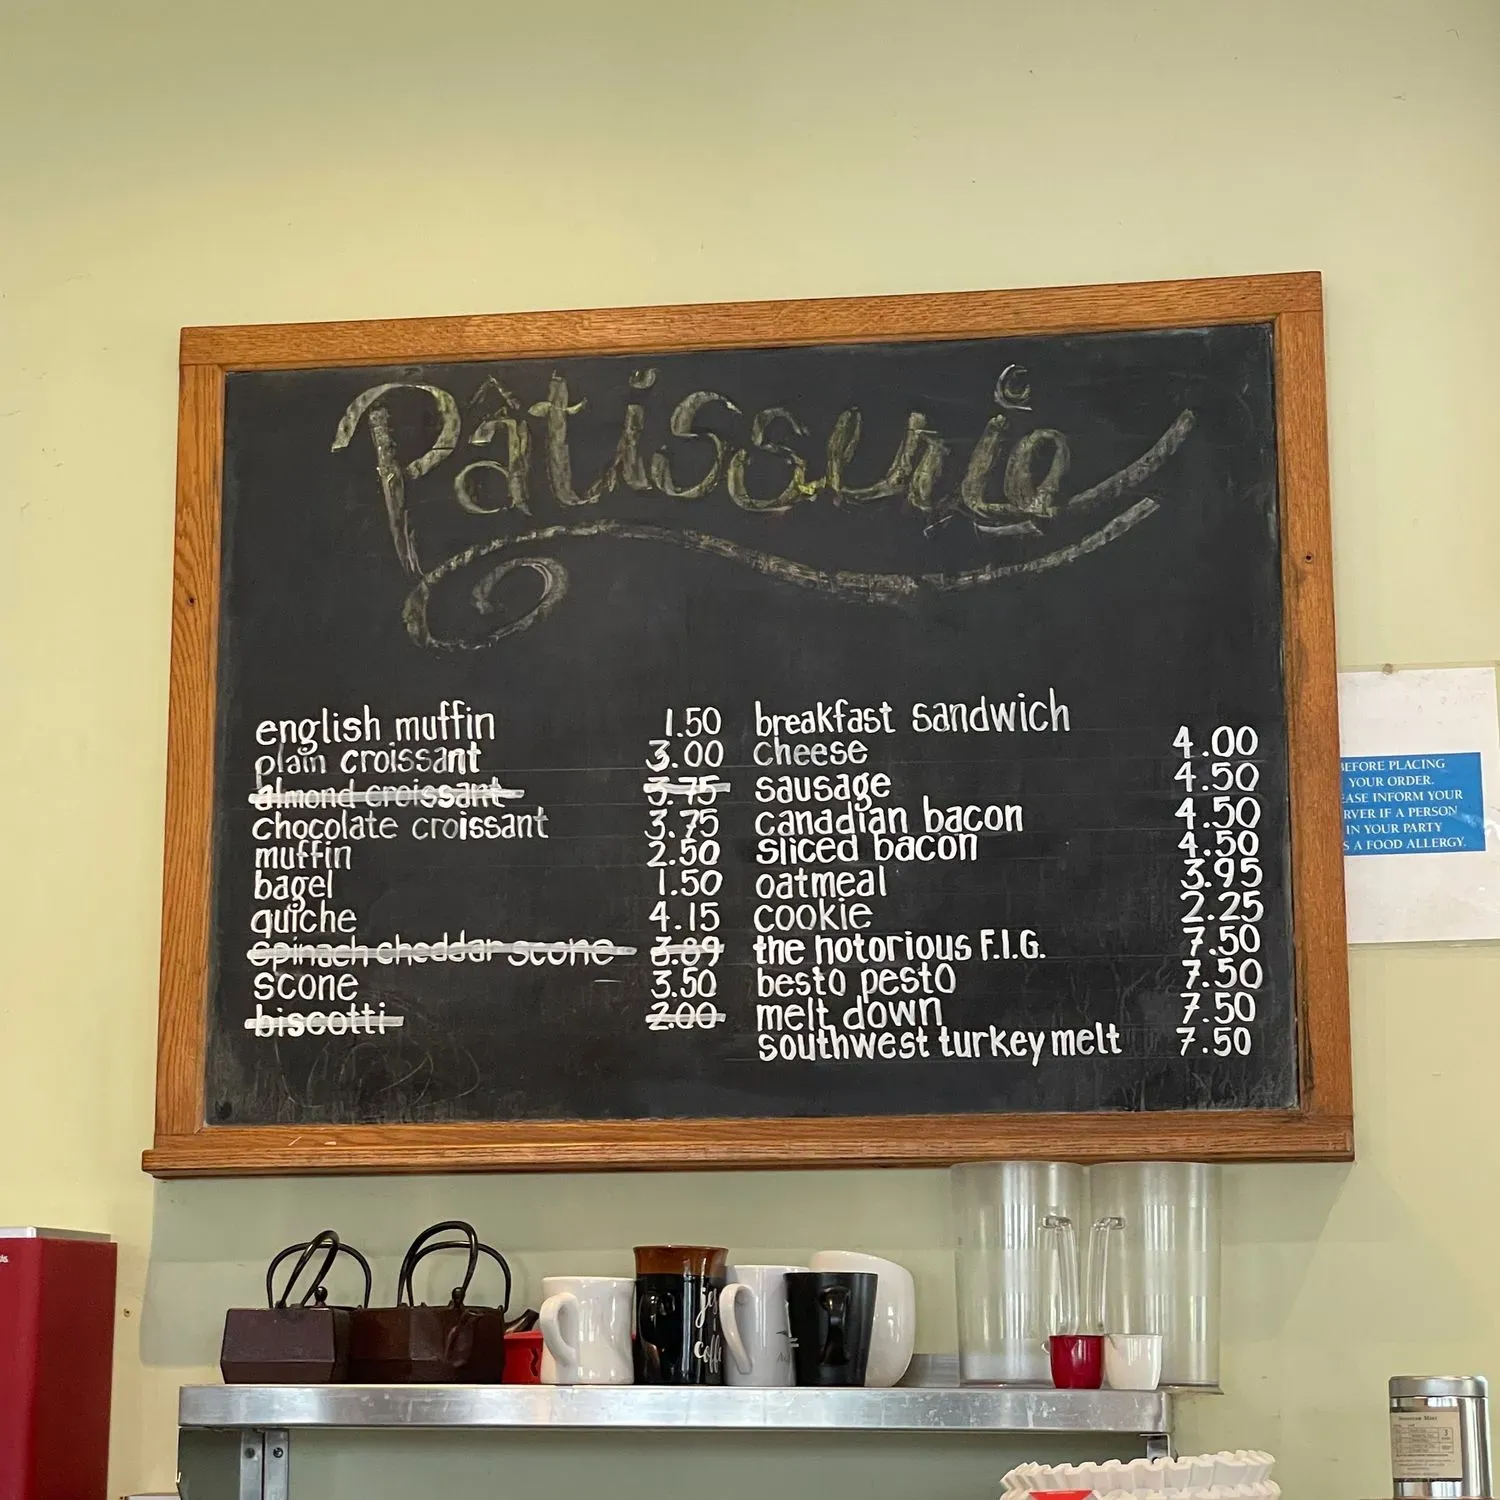 Pâtisserie
english muffin 1.50
plain croissant 3.00
almond croissant 3.75
chocolate croissant 3.75
muffin 2.50
bagel 1.50
quiche 4.15
spinach cheddar scone 3.89
scone 3.50
biscotti 2.00
breakfast sandwich
cheese 4.00
sausage 4.50
canadian bacon 4.50
sliced bacon 4.50
oatmeal 3.95
cookie 2.25
the notorious F.I.G. 7.50
besto pesto 7.50
melt down 7.50
southwest turkey melt 7.50
BEFORE PLACING
YOUR ORDER.
INFORM YOUR
IF A PERSON
IN YOUR PARTY
A FOOD ALLERGY.